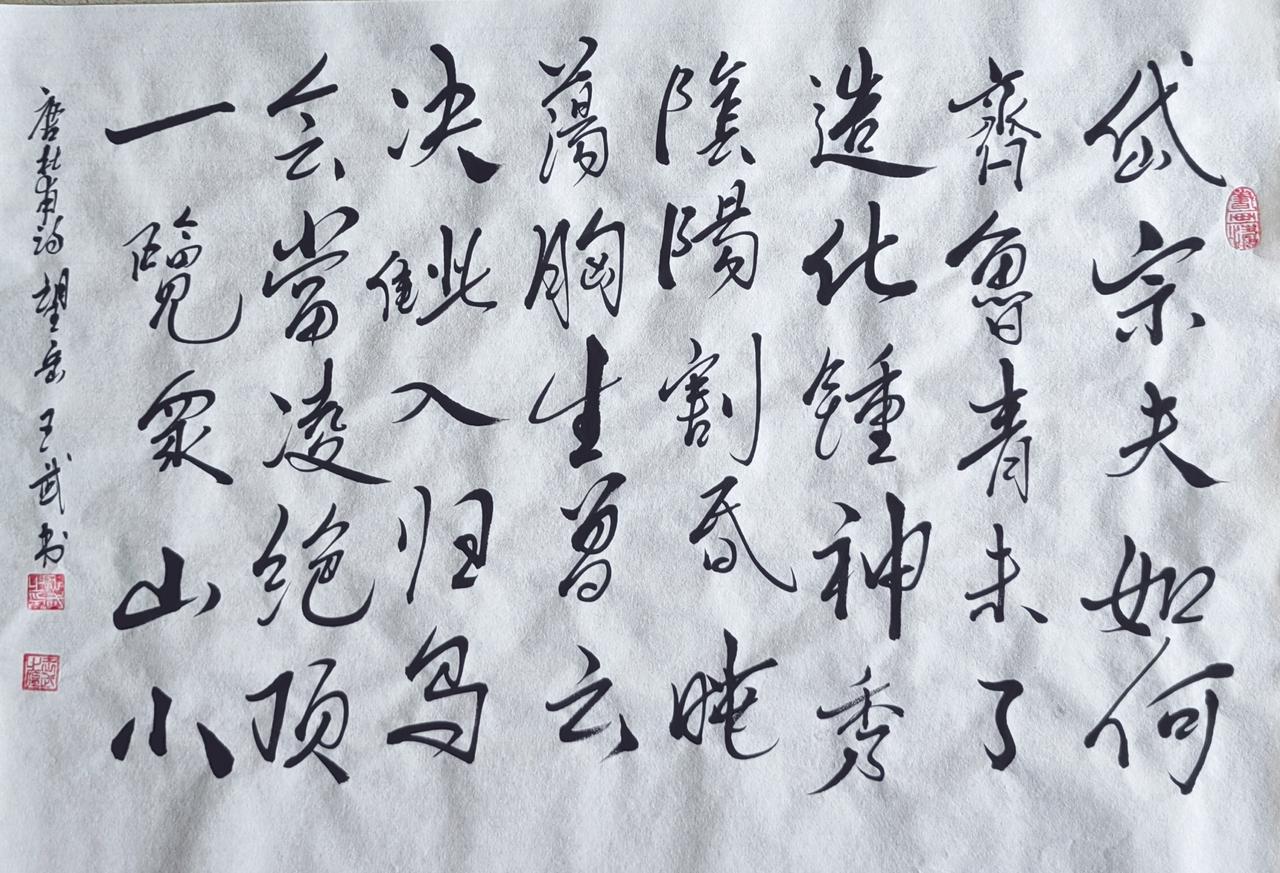 岱宗夫如何
齊魯青未了
造化鍾神秀
陰陽割昏曉
蕩胸生曾云
决眦入归鸟
会當凌绝顶
一覽眾山小
唐杜甫诗望岳王武书